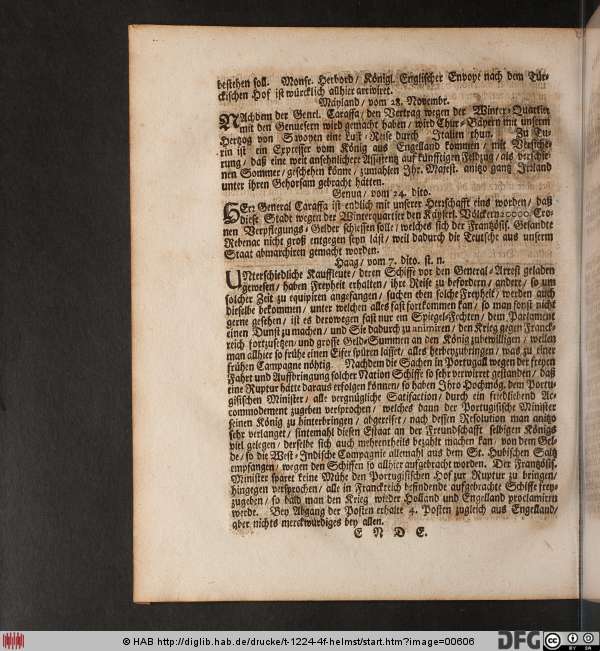 bestehen soll. Monsr. Herbord/ Königl. Englischer Envoye nach dem Tür-
ckischen Hof ist würcklich allhier arriviret.
Mäyland/ vom 28. Novembr.
NAchdem der Genel. Caraffa, den Vertrag wegen der Winter-Quartier
mit den Genuesern wird gemacht haben/ wird Chur-Bäyern mit unserm
Hertzog von Savoyen eine Lust-Reise durch Italien thun. Zu Tu-
rin ist ein Expresser vom König aus Engelland kommen/ mit Versiche-
rung/ daß eine weit ansehnlichere Assistentz auf künfftigen Feldzug/ als verschie-
nen Sommer/ geschehen könne/ zumahlen Ihr. Majest. anitzo gantz Irrland
unter ihren Gehorsam gebracht hätten.
Genua/ vom 24. dito.
HErr General Caraffa ist endlich mit unserer Herrschafft eins worden/ daß
diese Stadt wegen der Winterquartier den Käyserl. Völckern 20000 Cro-
nen Verpflegungs-Gelder schiessen solle/ welches sich der Frantzösis. Gesandte
Rebenac nicht groß entgegen seyn läst/ weil dadurch die Teutsche aus unserm
Staat abmarchiren gemacht worden.
Haag/ vom 7. dito. st. n.
UNterschiedliche Kauffleute/ deren Schiffe vor den General-Arrest geladen
gewesen/ haben Freyheit erhalten/ ihre Reise zu befordern/ andere/ so um
solcher Zeit zu equipiren angefangen/ suchen eben solche Freyheit/ werden auch
dieselbe bekommen/ unter welchen alles fast fortkommen kan/ so man sonst nicht
gerne gesehen/ ist es derowegen fast nur ein Spiegel-Fechten/ dem Parlament
einen Dunst zu machen/ und Sie dadurch zu animiren/ den Krieg gegen Franck-
reich fortzusetzen/ und grosse Geld-Summen an den König zubewilligen/ weilen
man allhier so frühe einen Eifer spüren lässet/ alles herbeyzubringen/ was zu einer
frühen Campagne nöhtig. Nachdem die Sachen in Portugall wegen der freyen
Fahrt und Auffbringung solcher Nation Schiffe so sehr verwirret gestanden/ daß
eine Ruptur hätte daraus erfolgen können/ so haben Ihro Hochmög. dem Portu-
gisischen Minister/ alle vergnügliche Satisfaction/ durch ein friedliebend Ac-
commodement zugeben versprochen/ welches dann der Portugisische Minister
seinen König zu hinterbringen/ abgereiset/ nach dessen Resolution man anitzo
sehr verlanget/ sintemahl diesen Estaat an der Freundschafft selbigen Königs
viel gelegen/ derselbe sich auch mehrentheils bezahlt machen kan von dem Gel-
de/ so die West-Indische Compagnie allemahl aus dem St. Hubischen Saltz
empfangen/ wegen den Schiffen so allhier aufgebracht worden. Der Frantzösis.
Minister sparet keine Mühe den Portugisischen Hof zur Ruptur zu bringen/
hingegen versprochen/ alle in Franckreich befindende aufgebrachte Schiffe frey-
zugeben/ so bald man den Krieg wieder Holland und Engelland proclamiren
werde. Bey Abgang der Posten erhalte 4. Posten zugleich aus Engelland/
aber nichts merckwürdiges bey allen.
E N D E.
© HAB http://diglib.hab.de/drucke/t-1224-4f-helmst/start.htm?image=00606
DFG
CC BY SA